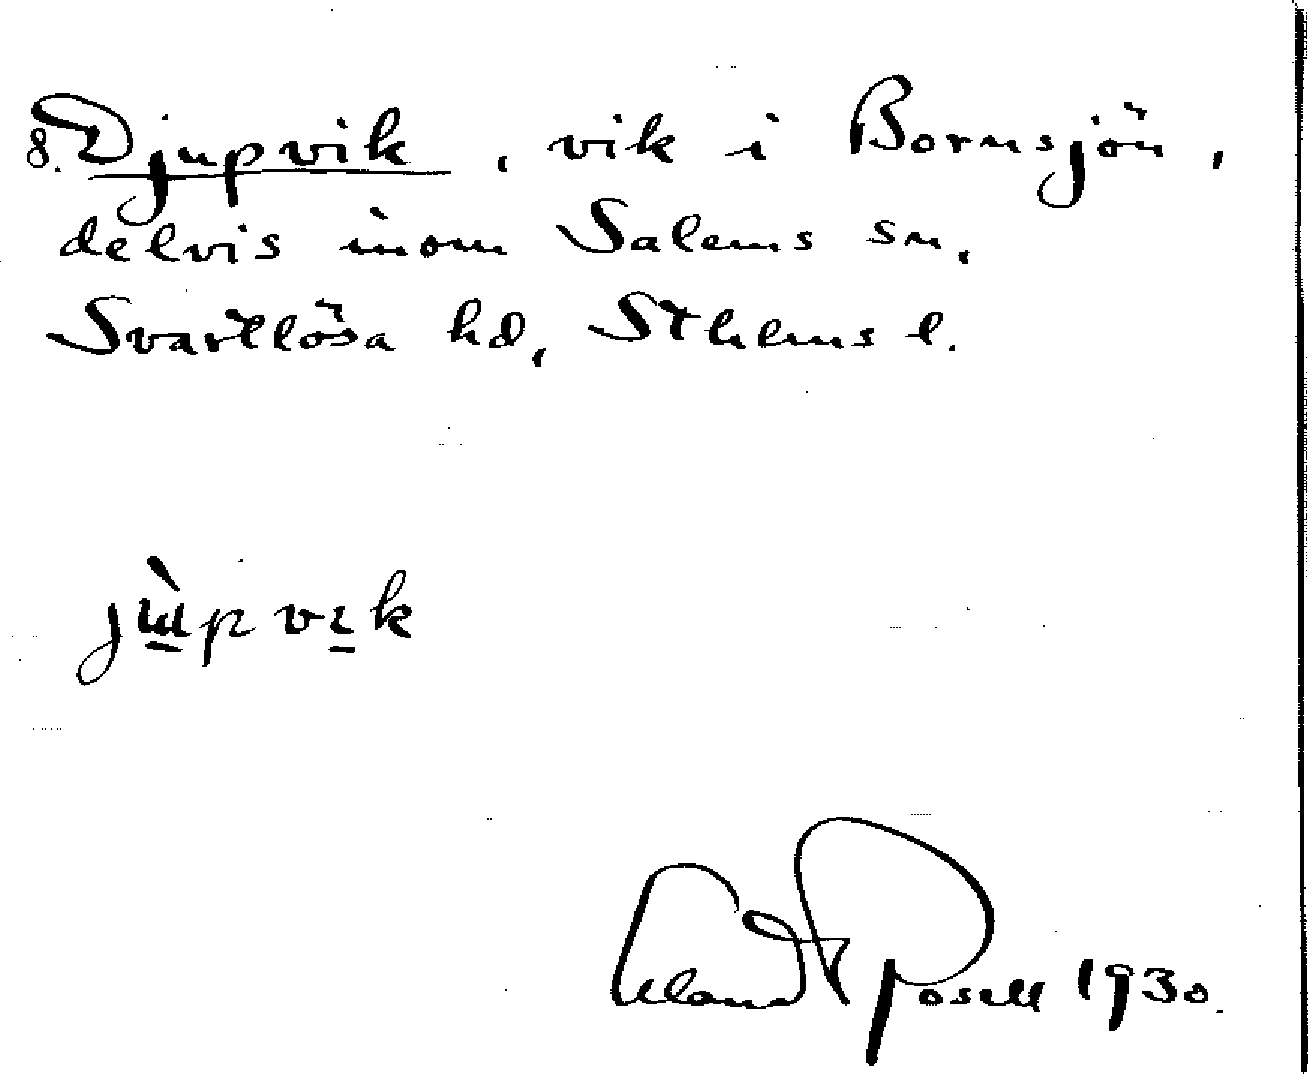 8. Djupvik, vik i Bornsjön,
delvis inom Salems sn,
Svartlösa hd, Sthlms l.
jùpvɩk
1930.